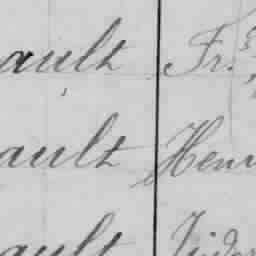 ault Fr.
ault Hen
ault